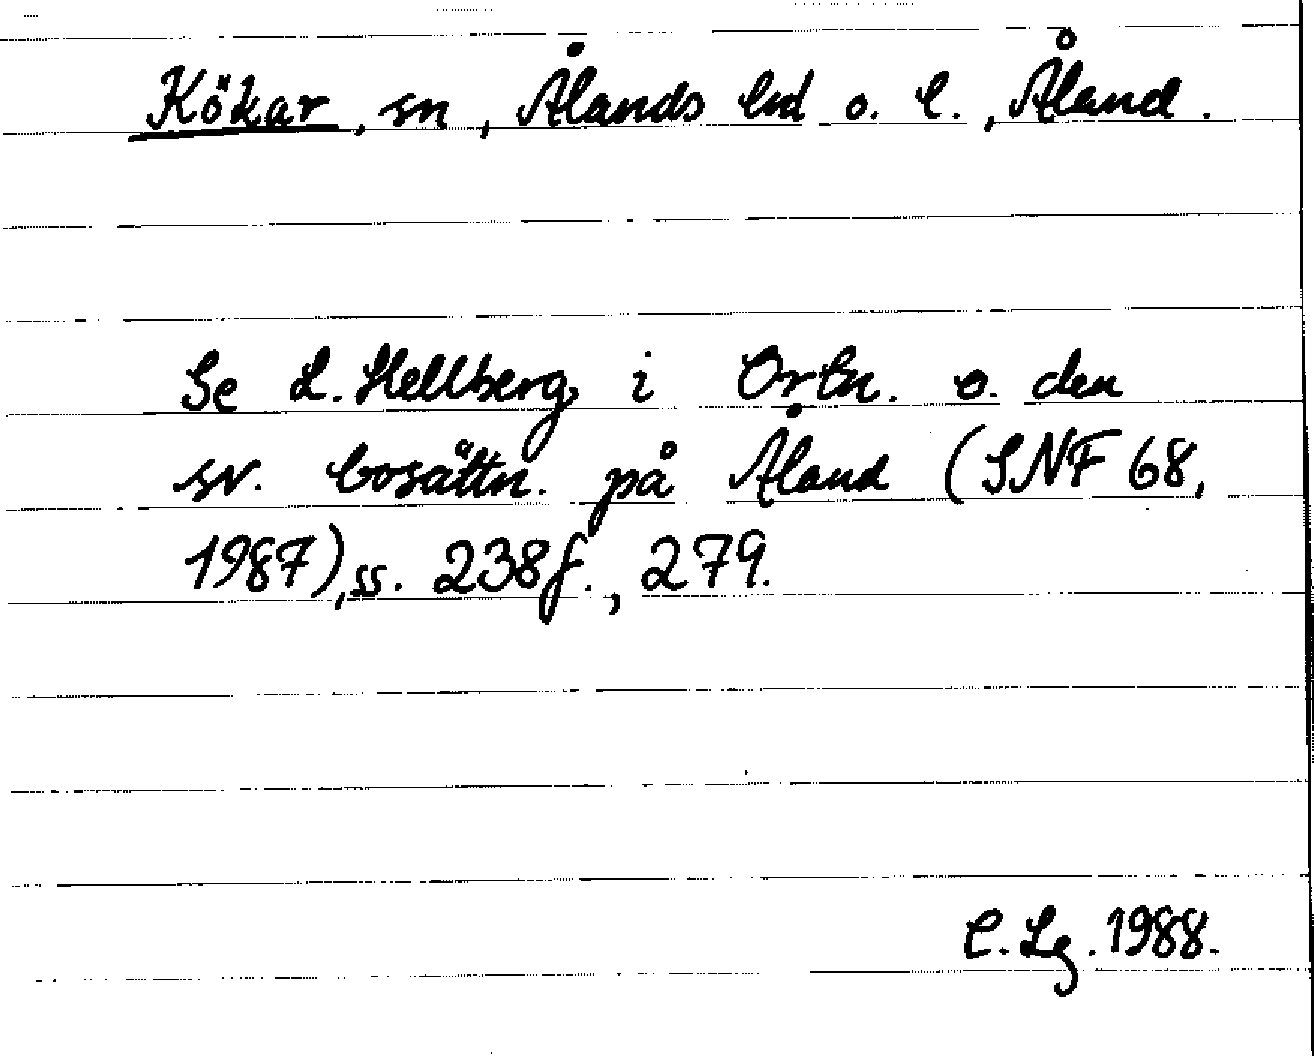 Kökar, sn, Ålands hd o. l., Åland.
Se L. Hellberg i Ortn. o. den
sv. bosättn. på Åland (SNF 68,
1987), ss. 238f., 279.
C. Lg. 1988.